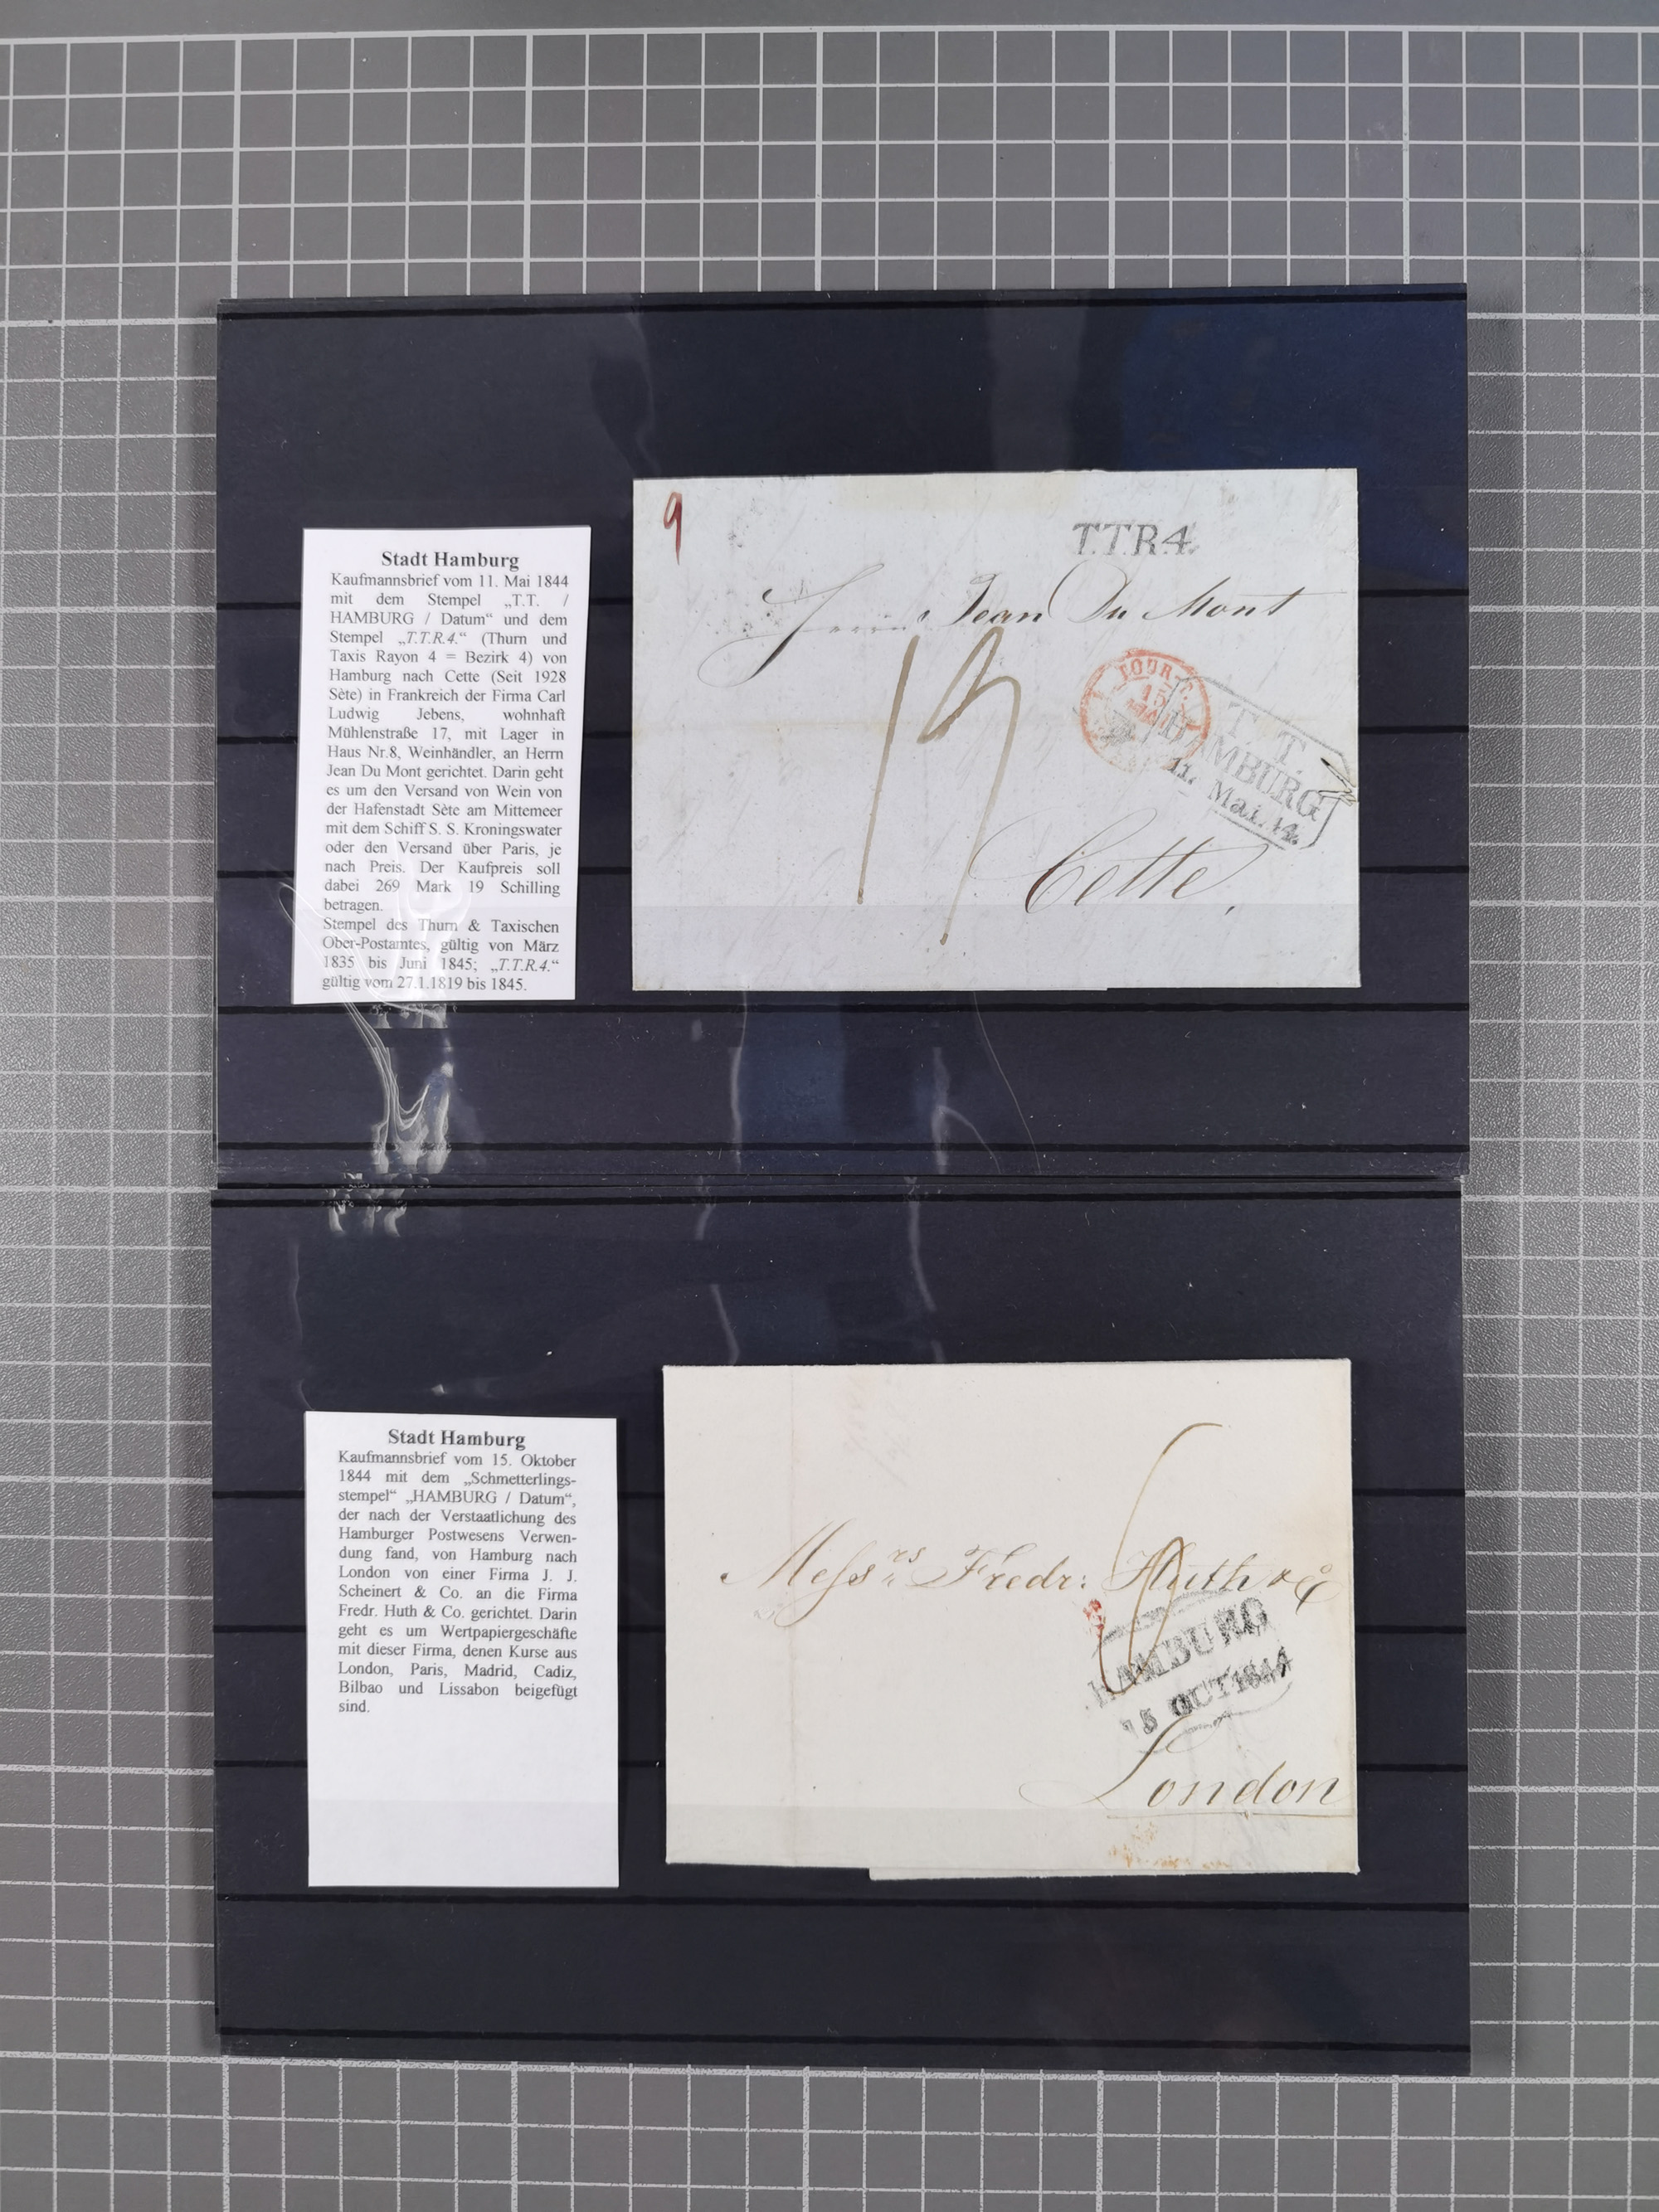 Stadt Hamburg
Kaufmannsbrief vom 11. Mai 1844
mit dem Stempel „T.T. /
HAMBURG / Datum“ und dem
Stempel „T.T.R.4.“ (Thurn und
Taxis Rayon 4 = Bezirk 4) von
Hamburg nach Cette (Seit 1928
Sète) in Frankreich der Firma Carl
Ludwig Jebens, wohnhaft
Mühlenstraße 17, mit Lager in
Haus Nr.8, Weinhändler, an Herrn
Jean Du Mont gerichtet. Darin geht
es um den Versand von Wein von
der Hafenstadt Sète am Mittemeer
mit dem Schiff S. S. Kroningswater
oder den Versand über Paris, je
nach Preis. Der Kaufpreis soll
dabei 269 Mark 19 Schilling
betragen.
Stempel des Thurn & Taxischen
Ober-Postamtes, gültig von März
1835 bis Juni 1845; „T.T.R.4.“
gültig vom 27.1.1819 bis 1845.
9
T.T.R.4.
Herrn Jean Du Mont
TOUR-T.
15
T. T.
HAMBURG
11. Mai. 44.
Cette.
Stadt Hamburg
Kaufmannsbrief vom 15. Oktober
1844 mit dem „Schmetterlings-
stempel“ „HAMBURG / Datum“,
der nach der Verstaatlichung des
Hamburger Postwesens Verwen-
dung fand, von Hamburg nach
London von einer Firma J. J.
Scheinert & Co. an die Firma
Fredr. Huth & Co. gerichtet. Darin
geht es um Wertpapiergeschäfte
mit dieser Firma, denen Kurse aus
London, Paris, Madrid, Cadiz,
Bilbao und Lissabon beigefügt
sind.
Messrs Fredr: Huth & Co
HAMBURG
15 OCT 1844
London